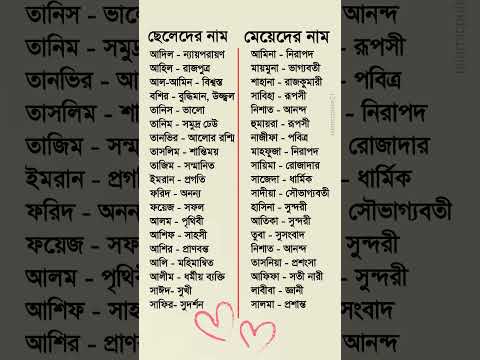 ছেলেদের নাম
আদিল - ন্যায়পরায়ণ
আহিল - রাজপুত্র
আল-আমিন - বিশ্বস্ত
বশির - বুদ্ধিমান, উজ্জ্বল
তানিস - ভালো
তানিম - সমুদ্র ঢেউ
তানভির - আলোর রশ্মি
তাসলিম - শান্তিময়
তাজিম - সম্মানিত
ইমরান - প্রগতি
ফরিদ - অনন্য
ফয়েজ - সফল
আলম - পৃথিবী
আশিফ - সাহসী
আশির - প্রাণবন্ত
আলি - মহিমান্বিত
আলীম - ধর্মীয় ব্যক্তি
সাঈদ- সুখী
সাফির- সুদর্শন
মেয়েদের নাম
আমিনা - নিরাপদ
মায়মুনা - ভাগ্যবতী
শাহানা - রাজকুমারী
সাবিহা - রূপসী
নিশাত - আনন্দ
হুমায়রা - রূপসী
নাজীফা - পবিত্র
মাহফুজা - নিরাপদ
সায়িমা - রোজাদার
সাজেদা - ধার্মিক
সাদীয়া - সৌভাগ্যবতী
হাসিনা - সুন্দরী
আতিকা - সুন্দরী
তুবা - সুসংবাদ
নিশাত - আনন্দ
তাসনিয়া - প্রশংসা
আফিফা - সতী নারী
লাবীবা - জ্ঞানী
সালমা - প্রশান্ত
তানিস - ভালো
তানিম - সমুদ্র
তানভির - আ
তাসলিম - শ
তাজিম - সম্ম
ইমরান - প্রগ
ফরিদ - অনন
ফয়েজ - সফ
আলম - পৃথি
আশিফ - সা
আশির - প্রাণ
আনন্দ
রূপসী
পবিত্র
নিরাপদ
রোজাদার
ধার্মিক
সৌভাগ্যবতী
সুন্দরী
সুন্দরী
সংবাদ
আনন্দ